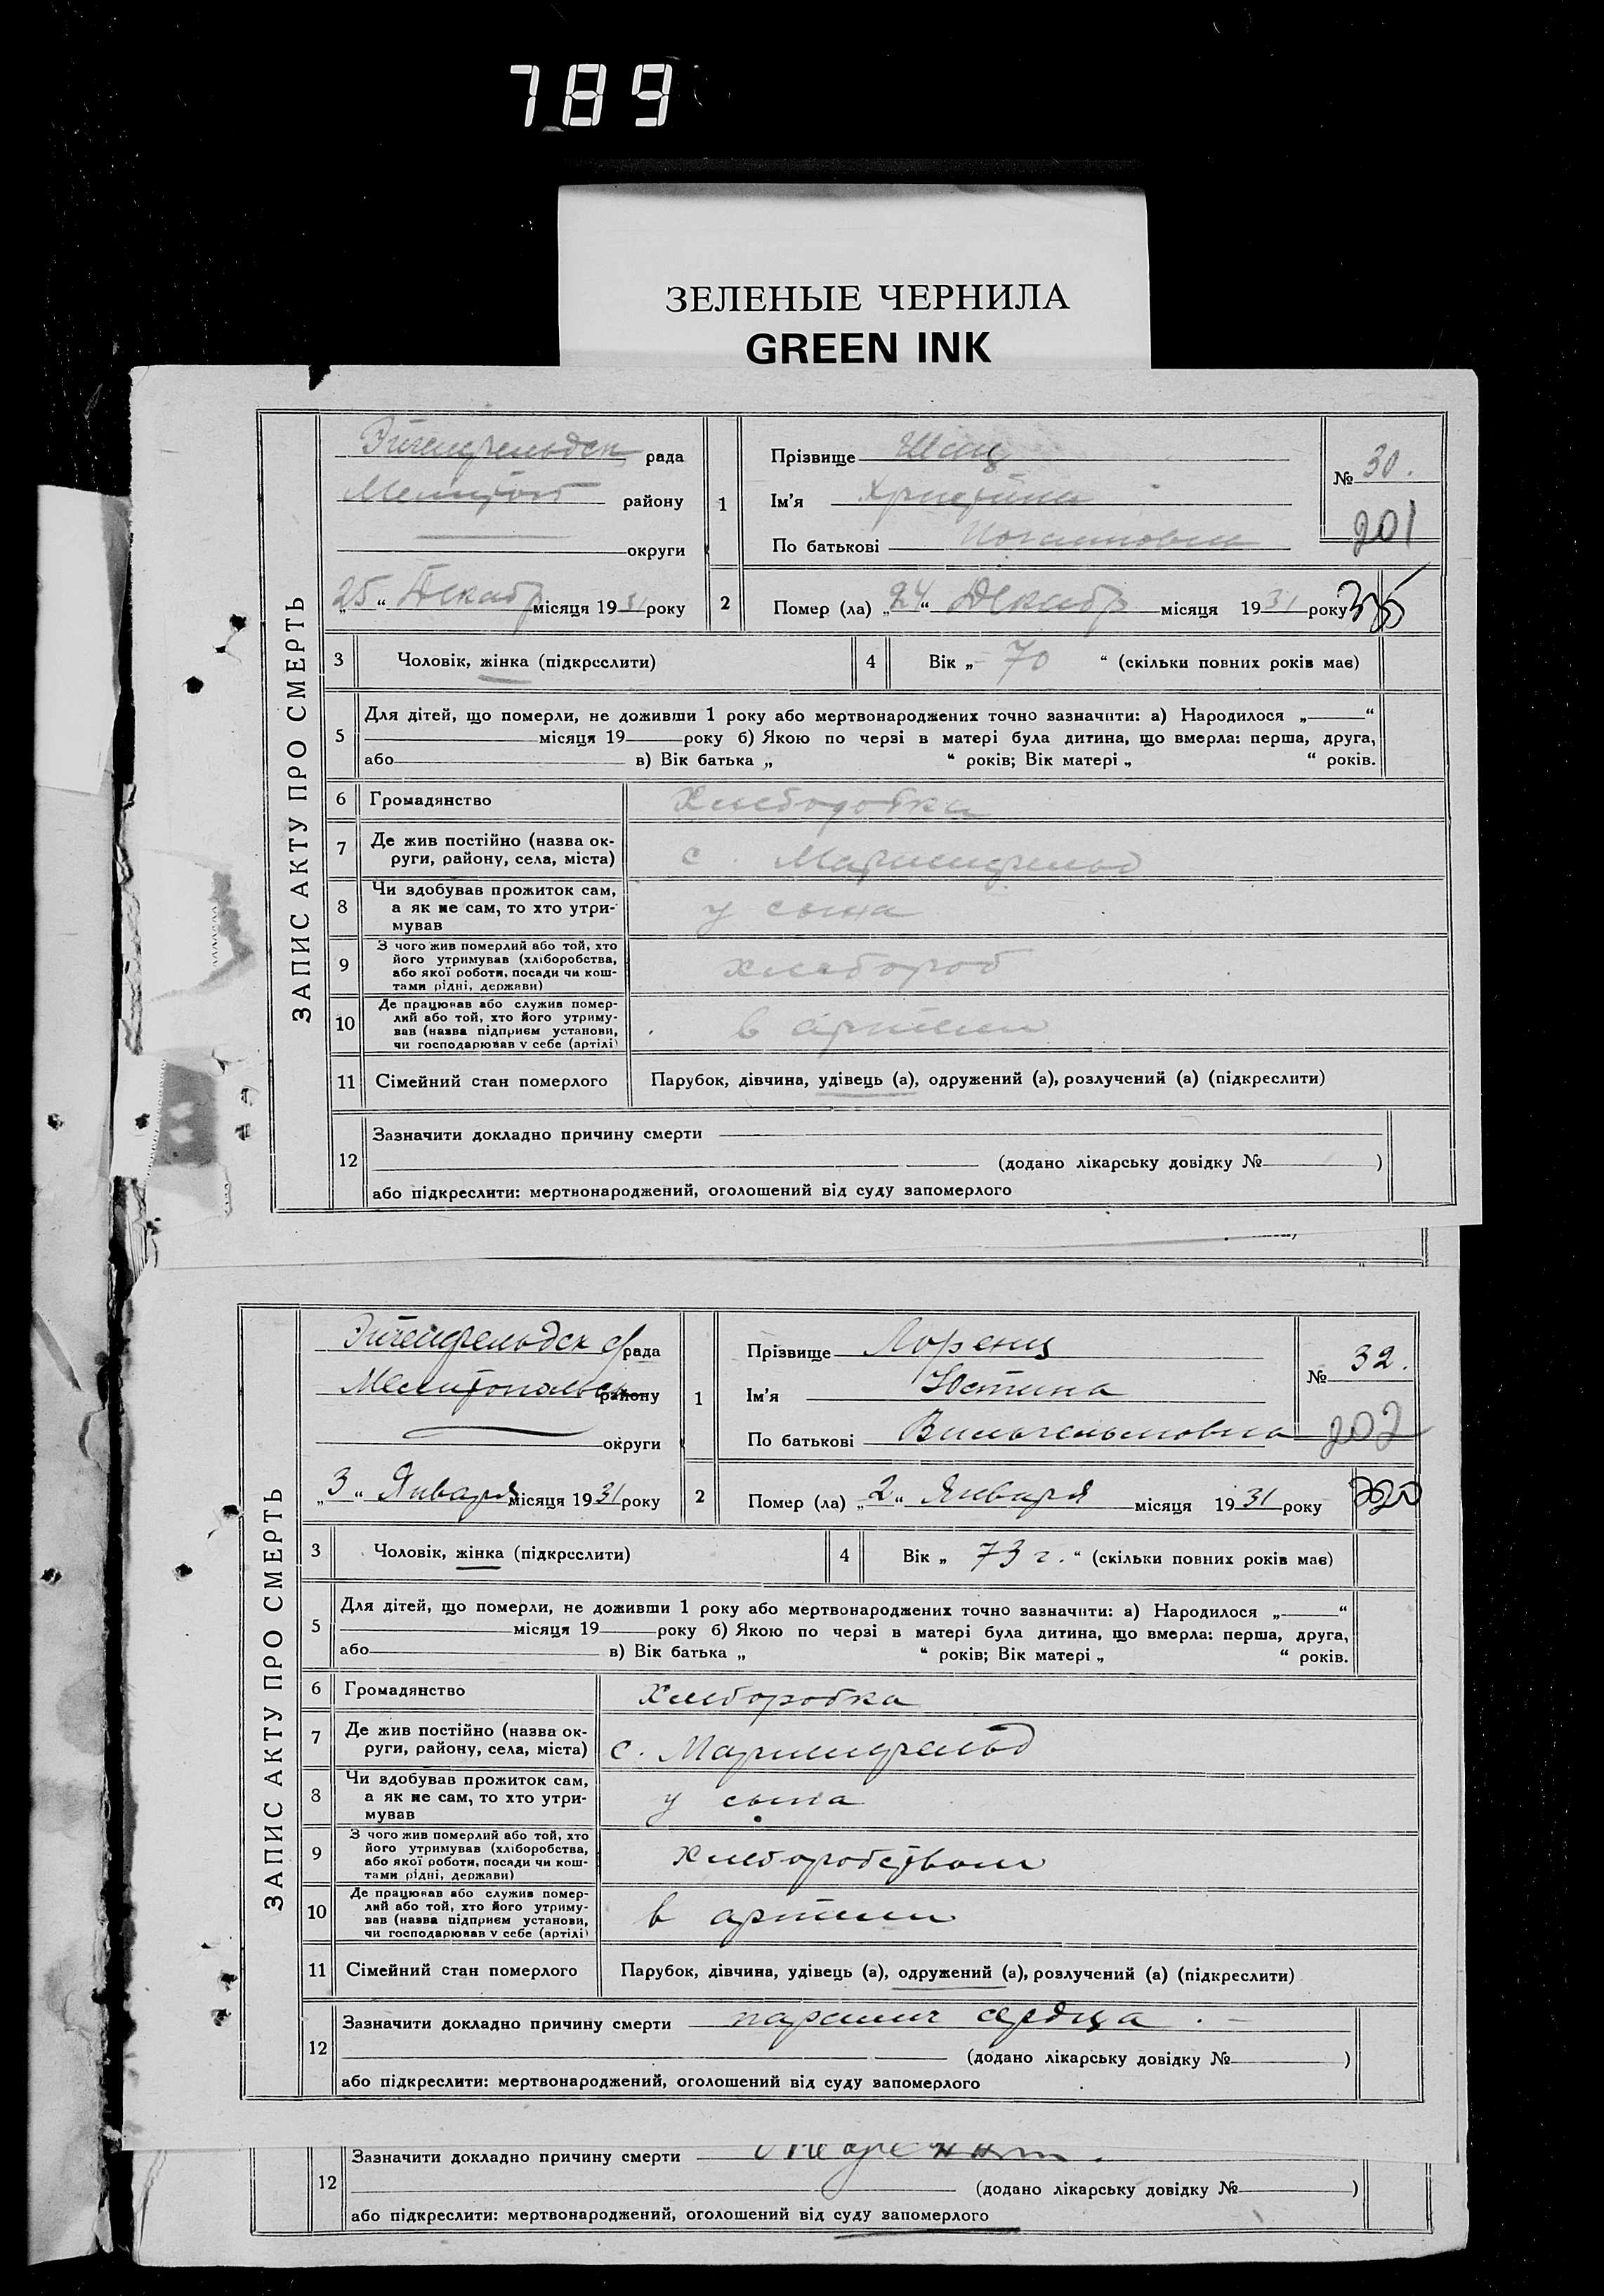 789
ЗЕЛЕНЫЕ ЧЕРНИЛА
GREEN INK
ЗАПИС АКТУ ПРО СМЕРТЬ
Эйгенфельдск рада
Мелитоп району
округи
„25“ Декабр місяця 1931 року
1
Прізвище Шац
Ім'я Христина
По батькові Иогановна
№ 30.
201
2
Помер (ла) „24“ Декабр місяця 1931 року
3 Чоловік, жінка (підкреслити)
4 Вік „ 70 “ (скільки повних років має)
5 Для дітей, що померли, не доживши 1 року або мертвонароджених точно зазначити: а) Народилося „ “
місяця 19 року б) Якою по черзі в матері була дитина, що вмерла: перша, друга,
або в) Вік батька „ “ років; Вік матері „ “ років.
6 Громадянство Хлеборобка
7 Де жив постійно (назва ок-
руги, району, села, міста) с. Мариенфельд
8 Чи здобував прожиток сам,
а як не сам, то хто утри-
мував у сына
9 З чого жив померлий або той, хто
його утримував (хліборобства,
або якої роботи, посади чи кош-
тами рідні, держави) хлебороб
10 Де працював або служив помер-
лий або той, хто його утриму-
вав (назва підприєм установи,
чи господарював у себе (артілі) в артели
11 Сімейний стан померлого Парубок, дівчина, удівець (а), одружений (а), розлучений (а) (підкреслити)
12 Зазначити докладно причину смерти
(додано лікарську довідку № )
або підкреслити: мертвонароджений, оголошений від суду запомерлого
ЗАПИС АКТУ ПРО СМЕРТЬ
Эйгенфельдск с/рада
Мелитопольск району
округи
„3“ Января місяця 1931 року
1
Прізвище Лоренц
Ім'я Юстина
По батькові Вильгельмовна
№ 32.
202
2
Помер (ла) „2“ Января місяця 1931 року
3 Чоловік, жінка (підкреслити)
4 Вік „ 73 г. “ (скільки повних років має)
5 Для дітей, що померли, не доживши 1 року або мертвонароджених точно зазначити: а) Народилося „ “
місяця 19 року б) Якою по черзі в матері була дитина, що вмерла: перша, друга,
або в) Вік батька „ “ років; Вік матері „ “ років.
6 Громадянство Хлеборобка
7 Де жив постійно (назва ок-
руги, району, села, міста) с. Мариенфельд
8 Чи здобував прожиток сам,
а як не сам, то хто утри-
мував у сына
9 З чого жив померлий або той, хто
його утримував (хліборобства,
або якої роботи, посади чи кош-
тами рідні, держави) хлеборобством
10 Де працював або служив помер-
лий або той, хто його утриму-
вав (назва підприєм установи,
чи господарював у себе (артілі) в артели
11 Сімейний стан померлого Парубок, дівчина, удівець (а), одружений (а), розлучений (а) (підкреслити)
12 Зазначити докладно причину смерти паралич сердца.
(додано лікарську довідку № )
або підкреслити: мертвонароджений, оголошений від суду запомерлого
12 Зазначити докладно причину смерти
(додано лікарську довідку № )
або підкреслити: мертвонароджений, оголошений від суду запомерлого